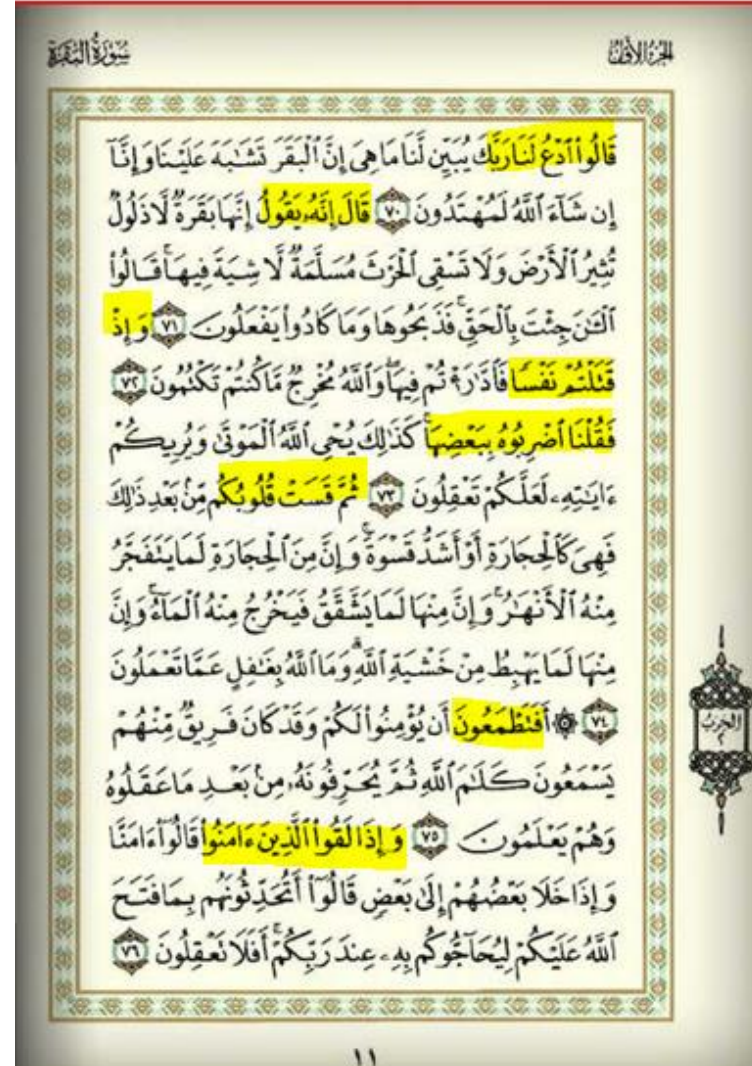 الجزء الأول
سورة البقرة
قَالُوا۟ ٱدْعُ لَنَا رَبَّكَ يُبَيِّن لَّنَا مَا هِىَ إِنَّ ٱلْبَقَرَ تَشَٰبَهَ عَلَيْنَا وَإِنَّآ
إِن شَآءَ ٱللَّهُ لَمُهْتَدُونَ ٧٠ قَالَ إِنَّهُۥ يَقُولُ إِنَّهَا بَقَرَةٌ لَّا ذَلُولٌ
تُثِيرُ ٱلْأَرْضَ وَلَا تَسْقِى ٱلْحَرْثَ مُسَلَّمَةٌ لَّا شِيَةَ فِيهَا ۚ قَالُوا۟
ٱلْـَٰٔنَ جِئْتَ بِٱلْحَقِّ ۚ فَذَبَحُوهَا وَمَا كَادُوا۟ يَفْعَلُونَ ٧١ وَإِذْ
قَتَلْتُمْ نَفْسًا فَٱدَّٰرَْٰٔتُمْ فِيهَا ۖ وَٱللَّهُ مُخْرِجٌ مَّا كُنتُمْ تَكْتُمُونَ ٧٢
فَقُلْنَا ٱضْرِبُوهُ بِبَعْضِهَا ۚ كَذَٰلِكَ يُحْىِ ٱللَّهُ ٱلْمَوْتَىٰ وَيُرِيكُمْ
ءَايَٰتِهِۦ لَعَلَّكُمْ تَعْقِلُونَ ٧٣ ثُمَّ قَسَتْ قُلُوبُكُم مِّنۢ بَعْدِ ذَٰلِكَ
فَهِىَ كَٱلْحِجَارَةِ أَوْ أَشَدُّ قَسْوَةً ۚ وَإِنَّ مِنَ ٱلْحِجَارَةِ لَمَا يَتَفَجَّرُ
مِنْهُ ٱلْأَنْهَٰرُ ۚ وَإِنَّ مِنْهَا لَمَا يَشَّقَّقُ فَيَخْرُجُ مِنْهُ ٱلْمَآءُ ۚ وَإِنَّ
مِنْهَا لَمَا يَهْبِطُ مِنْ خَشْيَةِ ٱللَّهِ ۗ وَمَا ٱللَّهُ بِغَٰفِلٍ عَمَّا تَعْمَلُونَ
٧٤ ۞ أَفَتَطْمَعُونَ أَن يُؤْمِنُوا۟ لَكُمْ وَقَدْ كَانَ فَرِيقٌ مِّنْهُمْ
الحزب
٢
يَسْمَعُونَ كَلَٰمَ ٱللَّهِ ثُمَّ يُحَرِّفُونَهُۥ مِنۢ بَعْدِ مَا عَقَلُوهُ
وَهُمْ يَعْلَمُونَ ٧٥ وَإِذَا لَقُوا۟ ٱلَّذِينَ ءَامَنُوا۟ قَالُوٓا۟ ءَامَنَّا
وَإِذَا خَلَا بَعْضُهُمْ إِلَىٰ بَعْضٍ قَالُوٓا۟ أَتُحَدِّثُونَهُم بِمَا فَتَحَ
ٱللَّهُ عَلَيْكُمْ لِيُحَآجُّوكُم بِهِۦ عِندَ رَبِّكُمْ ۚ أَفَلَا تَعْقِلُونَ ٧٦
١١